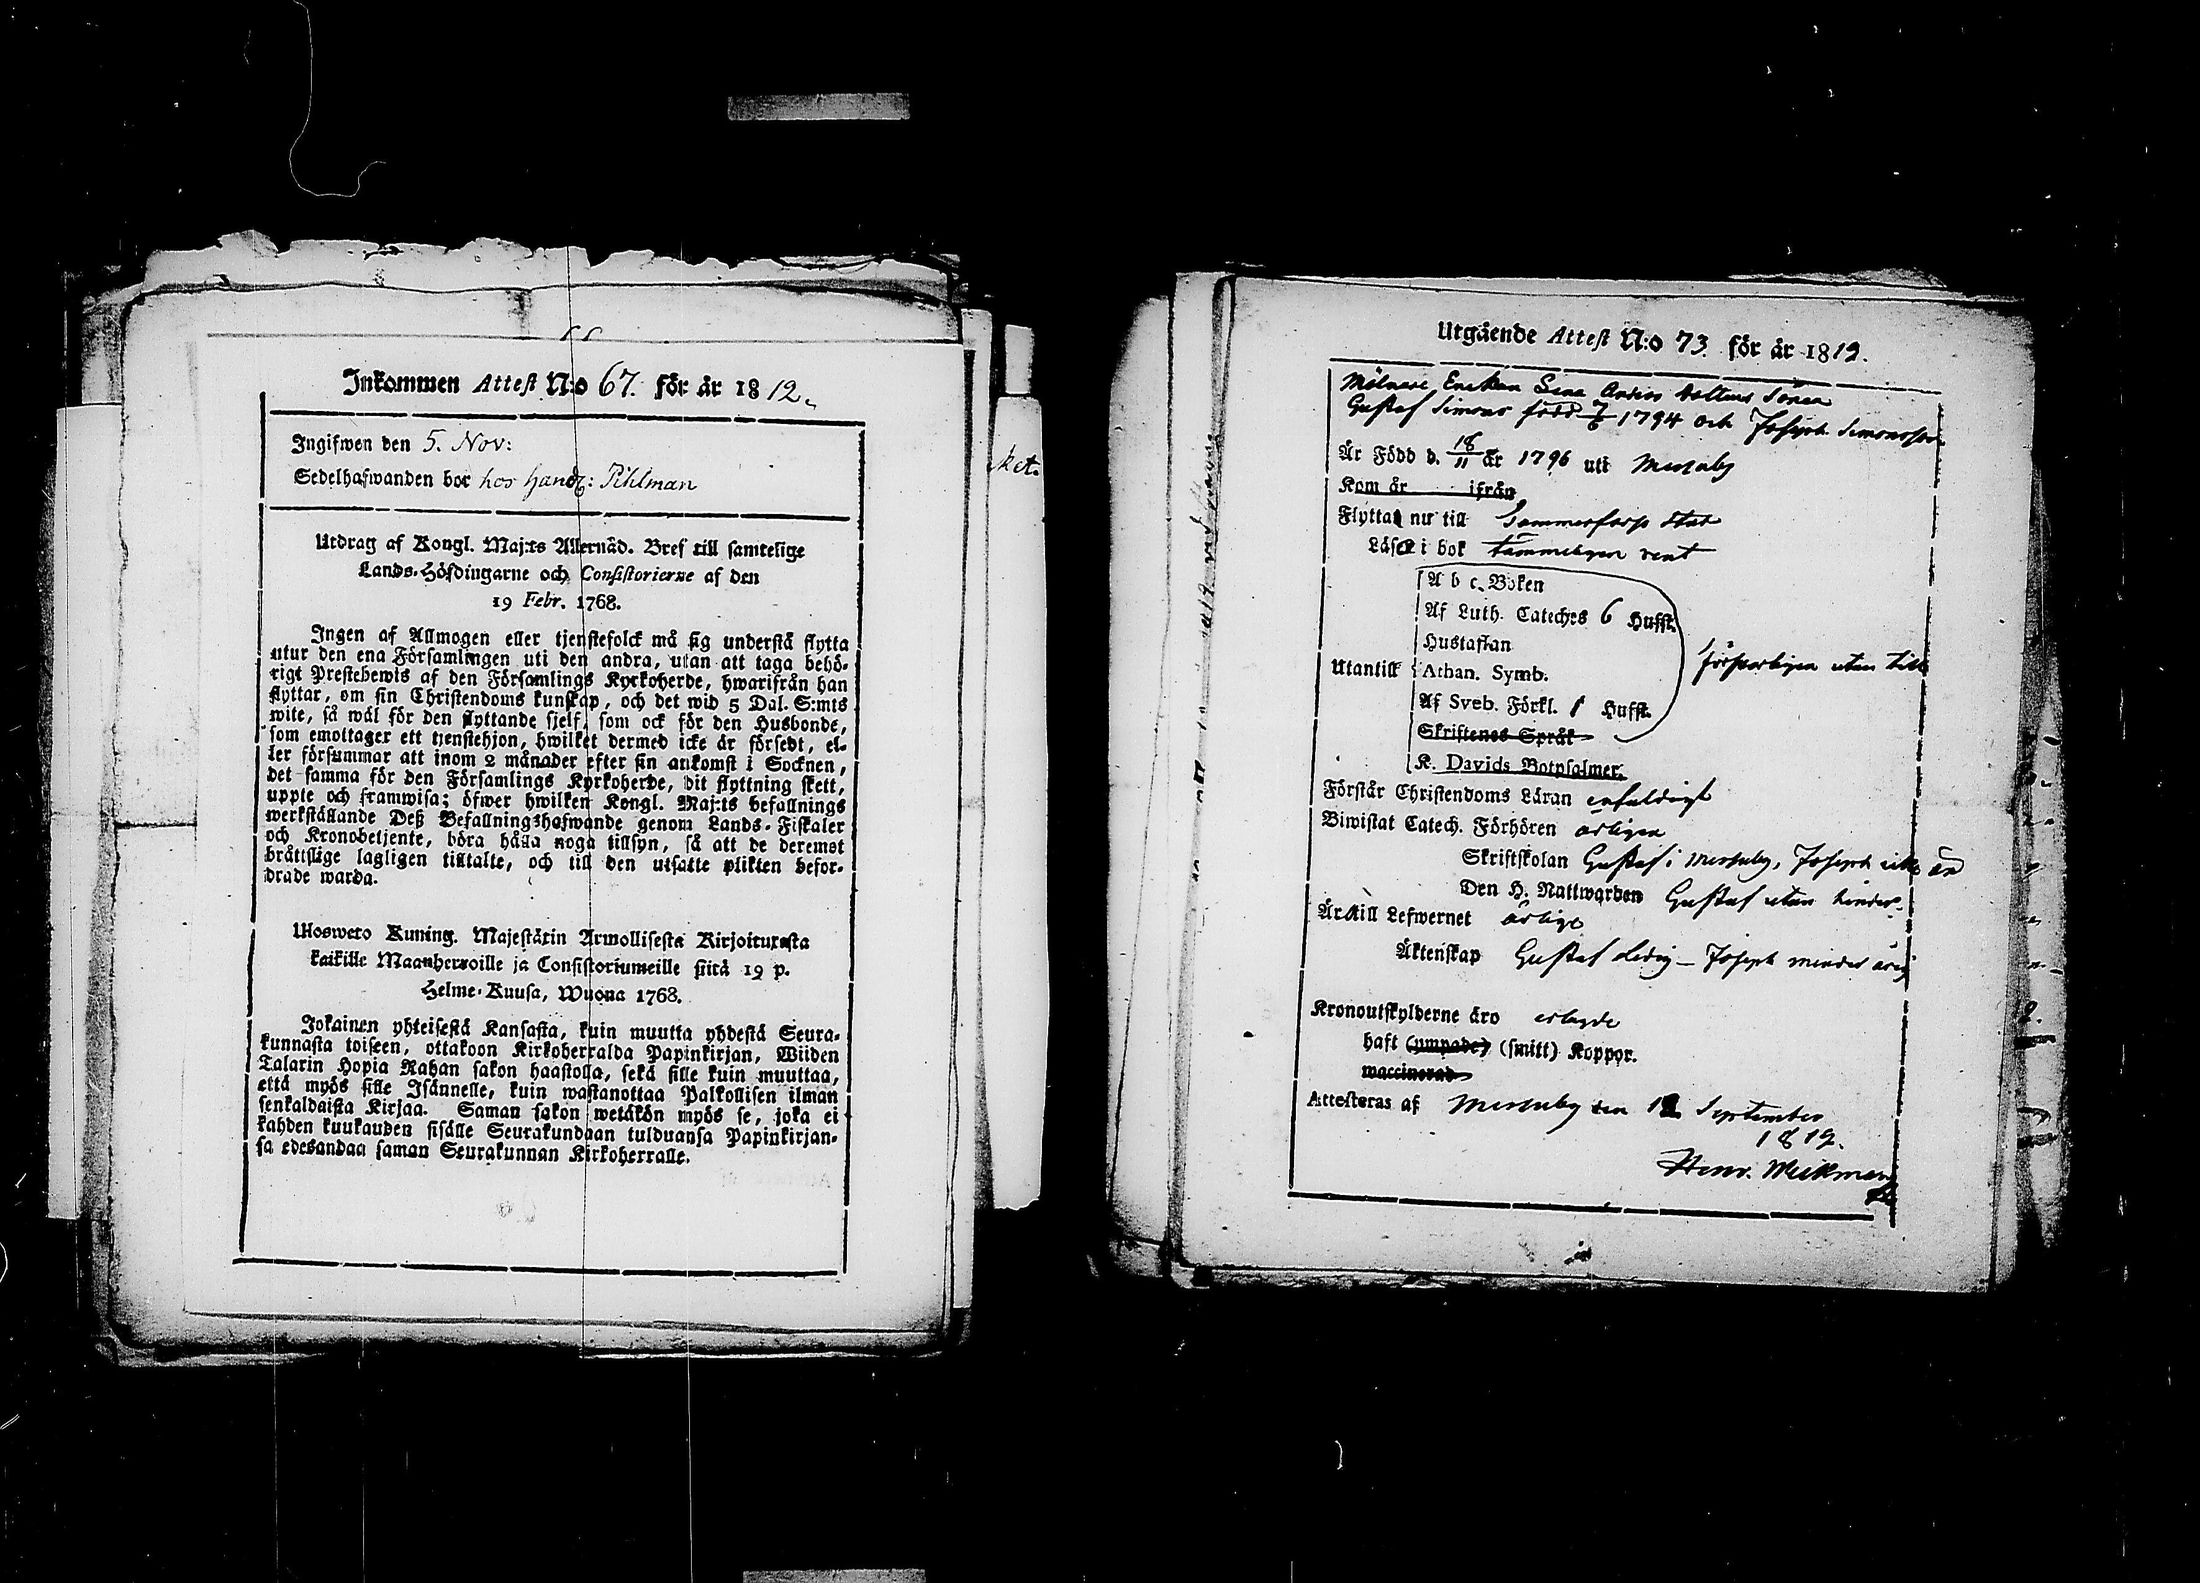 Inkommen Attest N:o 67. för år 1812.
Ingifwen den 5. Nov:
Sedelhafwanden bor hos Handl: Pihlman
Utdrag af Kongl. Maj:ts Allernåd. Bref till samtelige
Lands-Höfdingarne och Consistorierne af den
19 Febr. 1768.
Ingen af Allmogen eller tjenstefolck må sig understå flytta
utur den ena Församlingen uti den andra, utan att taga behö-
rigt Prestebewis af den Församlings Kyrkoherde, hwarifrån han
flyttar, om sin Christendoms kunskap, och det wid 5 Dal. S:mts
wite, så wäl för den flyttande sjelf, som ock för den Husbonde,
som emottager ett tjenstehjon, hwilket dermed icke är försedt, el-
ler försummar att inom 2 månader efter sin ankomst i Socknen,
det samma för den Församlings Kyrkoherde, dit flyttning skett,
uppte och framwisa; öfwer hwilken Kongl. Maj:ts befallnings
werkställande Deß Befallningshafwande genom Lands-Fiskaler
och Kronobetjente, böra hålla noga tillsyn, så att de deremot
bråttslige lagligen tilltalte, och till den utsatte plikten befor-
drade warda.
Ulosweto Kuning. Majestätin Armollisesta Kirjoituxesta
kaikille Maanherroille ja Consistoriumeille siitä 19 p.
Helme-Kuusa, Wuona 1768.
Jokainen yhteisestä Kansasta, kuin muutta yhdestä Seura-
kunnasta toiseen, ottakoon Kirkoherralda Papinkirjan, Wiiden
Talarin Hopia Rahan sakon haastolla, sekä sille kuin muuttaa,
että myös sille Isännelle, kuin wastanottaa Palkollisen ilman
senkaldaista Kirjaa. Saman sakon wetäkön myös se, joka ei
kahden kuukauden sisälle Seurakundaan tulduansa Papinkirjan-
sa edesandaa saman Seurakunnan Kirkoherralle.
ket.
Utgående Attest N:o 73. för år 1812.
Mölnare Enckan Anders Sönen
Gustaf Simons född 7/6 1794 och Joseph Simonsson
Är Född d. 18/11 år 1796 uti
Kom år ifrån
Flyttat nu till Tammerfors Stad
Läser i bok tämmeligen rent
A b c. Boken
Af Luth. Cateches 6 Hufst.
Hustaflan
Utantill Athan. Symb. försvarligen utan till
Af Sveb. Förkl. 1 Hufst.
Skriftenes Språk
K. Davids Botpsalmer.
Förstår Christendoms Läran enfaldigt
Biwistat Catech. Förhören årligen
Skriftskolan Gustaf i Joseph icke än
Den H. Nattwarden Gustaf utan hinder.
Är till Lefwernet ärlige
Äktenskap Gustaf ledig – Joseph minder årig
Kronoutskylderne äro erlagde
haft (ympade) (smitt) Koppor.
waccinerad
Attesteras af den 12 September
1812.
Henr.